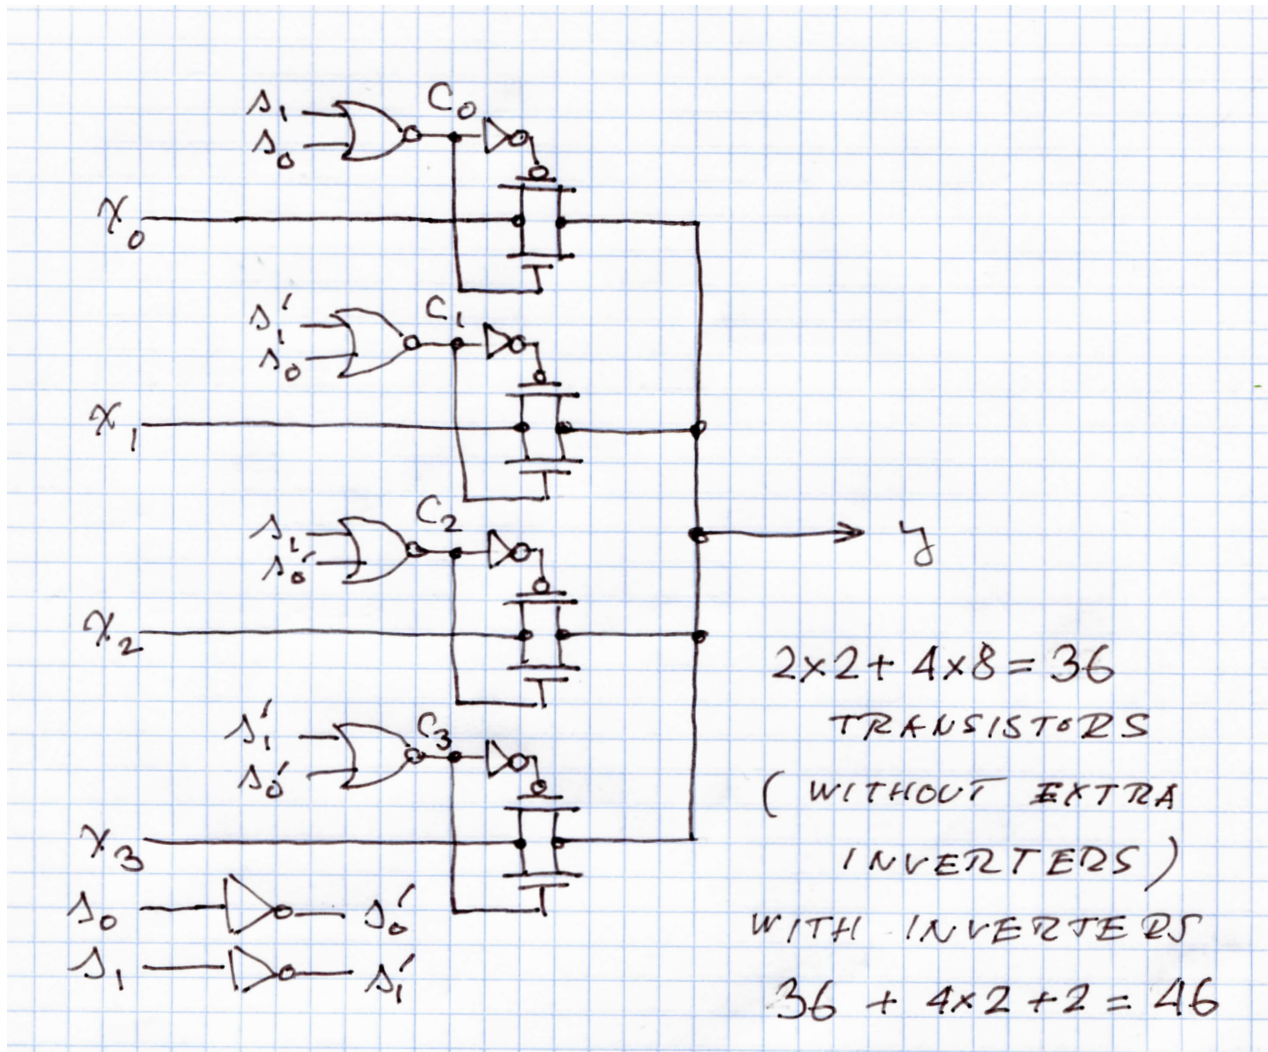 s₁
s₀
C₀
x₀
s₁'
s₀
C₁
x₁
s₁
s₀'
C₂
x₂
s₁'
s₀'
C₃
x₃
s₀ s₀'
s₁ s₁'
y
2×2 + 4×8 = 36
TRANSISTORS
( WITHOUT EXTRA
INVERTERS)
WITH INVERTERS
36 + 4×2 + 2 = 46